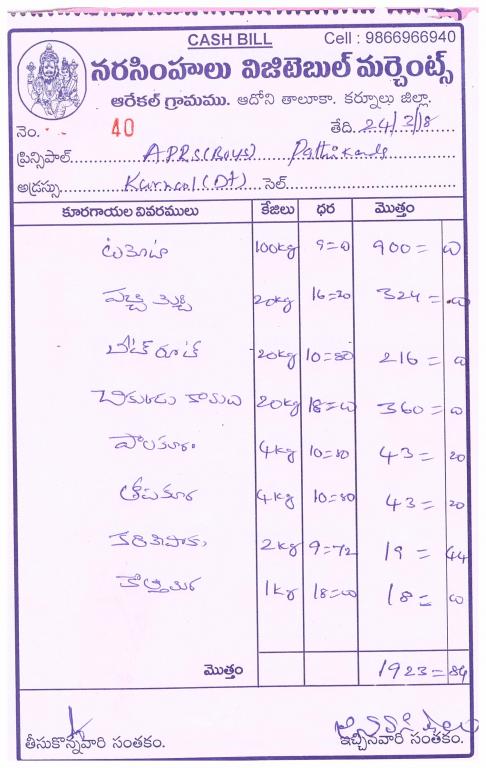 CASH BILL Cell : 9866966940
నరసింహులు విజిటెబుల్ మర్చెంట్స్
ఆరేకల్ గ్రామము. ఆదోని తాలూకా. కర్నూలు జిల్లా.
నెం. 40 తేది. 24/3/18
ప్రిన్సిపాల్ APRS(Boys) Pattikonda
అడ్రస్సు Kurnool (Dt) సెల్
కూరగాయల వివరములు కేజిలు ధర మొత్తం
టమోటా 100kg 9=00 900=00
పచ్చి మిర్చి 20kg 16=20 324=00
బీట్ రూట్ 20kg 10=80 216=00
చికుడు కాయ 20kg 18=00 360=00
పాలకూర 4kg 10=80 43=20
4kg 10=80 43=20
కరివేపాకు 2kg 9=72 19=44
కొత్తిమీర 1kg 18=00 18=00
మొత్తం 1923=84
తీసుకొన్నవారి సంతకం. ఇచ్చినవారి సంతకం.